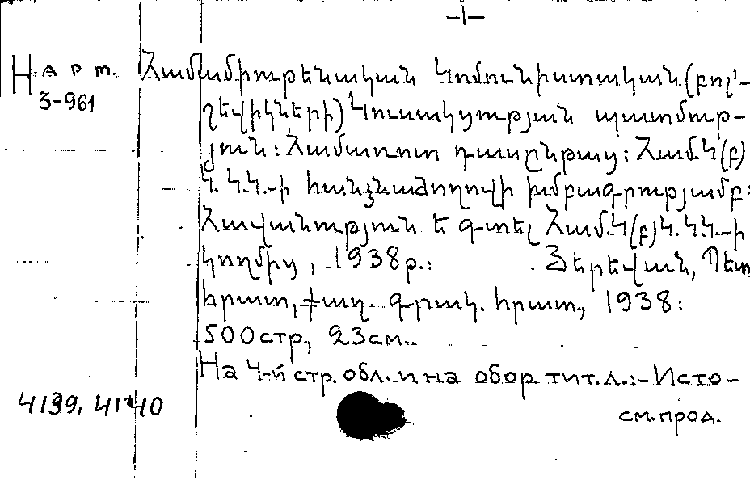 -1-
Нарт. Համամիութենական Կոմունիստական (բոլ-
3-961
շեվիկների) Կուսակցության պատմութ-
յուն: Համառոտ դասընթաց: Համ.Կ(բ)
Կ. Կ.Կ.-ի հանձնաժողովի խմբագրությամբ:
Հավանություն է գտել Համ.Կ(բ)Կ.ԿԿ.-ի
կողմից, 1938թ.: Յերեվան, Պետ
հրատ, քաղ. գրակ. հրատ, 1938:
500стр, 23см.
На 4-й стр. обл. и на обор. тит. л.:-Исто-
4139, 4140
см. прод.